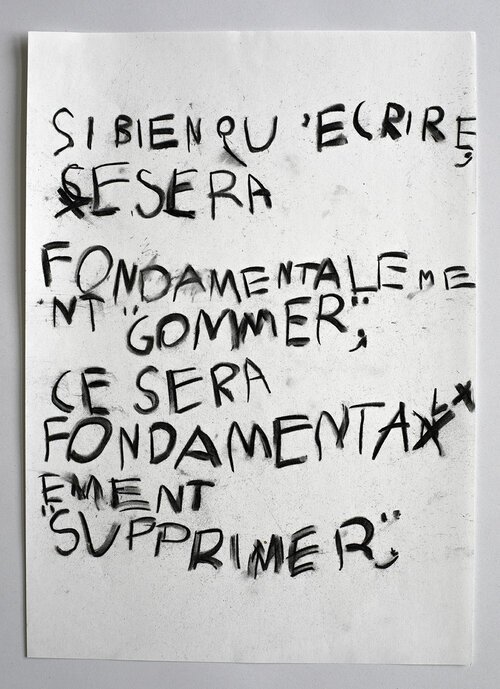 SI BIEN QU 'ECRIRE,
SE SERA
FONDAMENTALEME
NT "GOMMER",
CE SERA
FONDAMENTAL
EMENT
"SUPPRIMER",